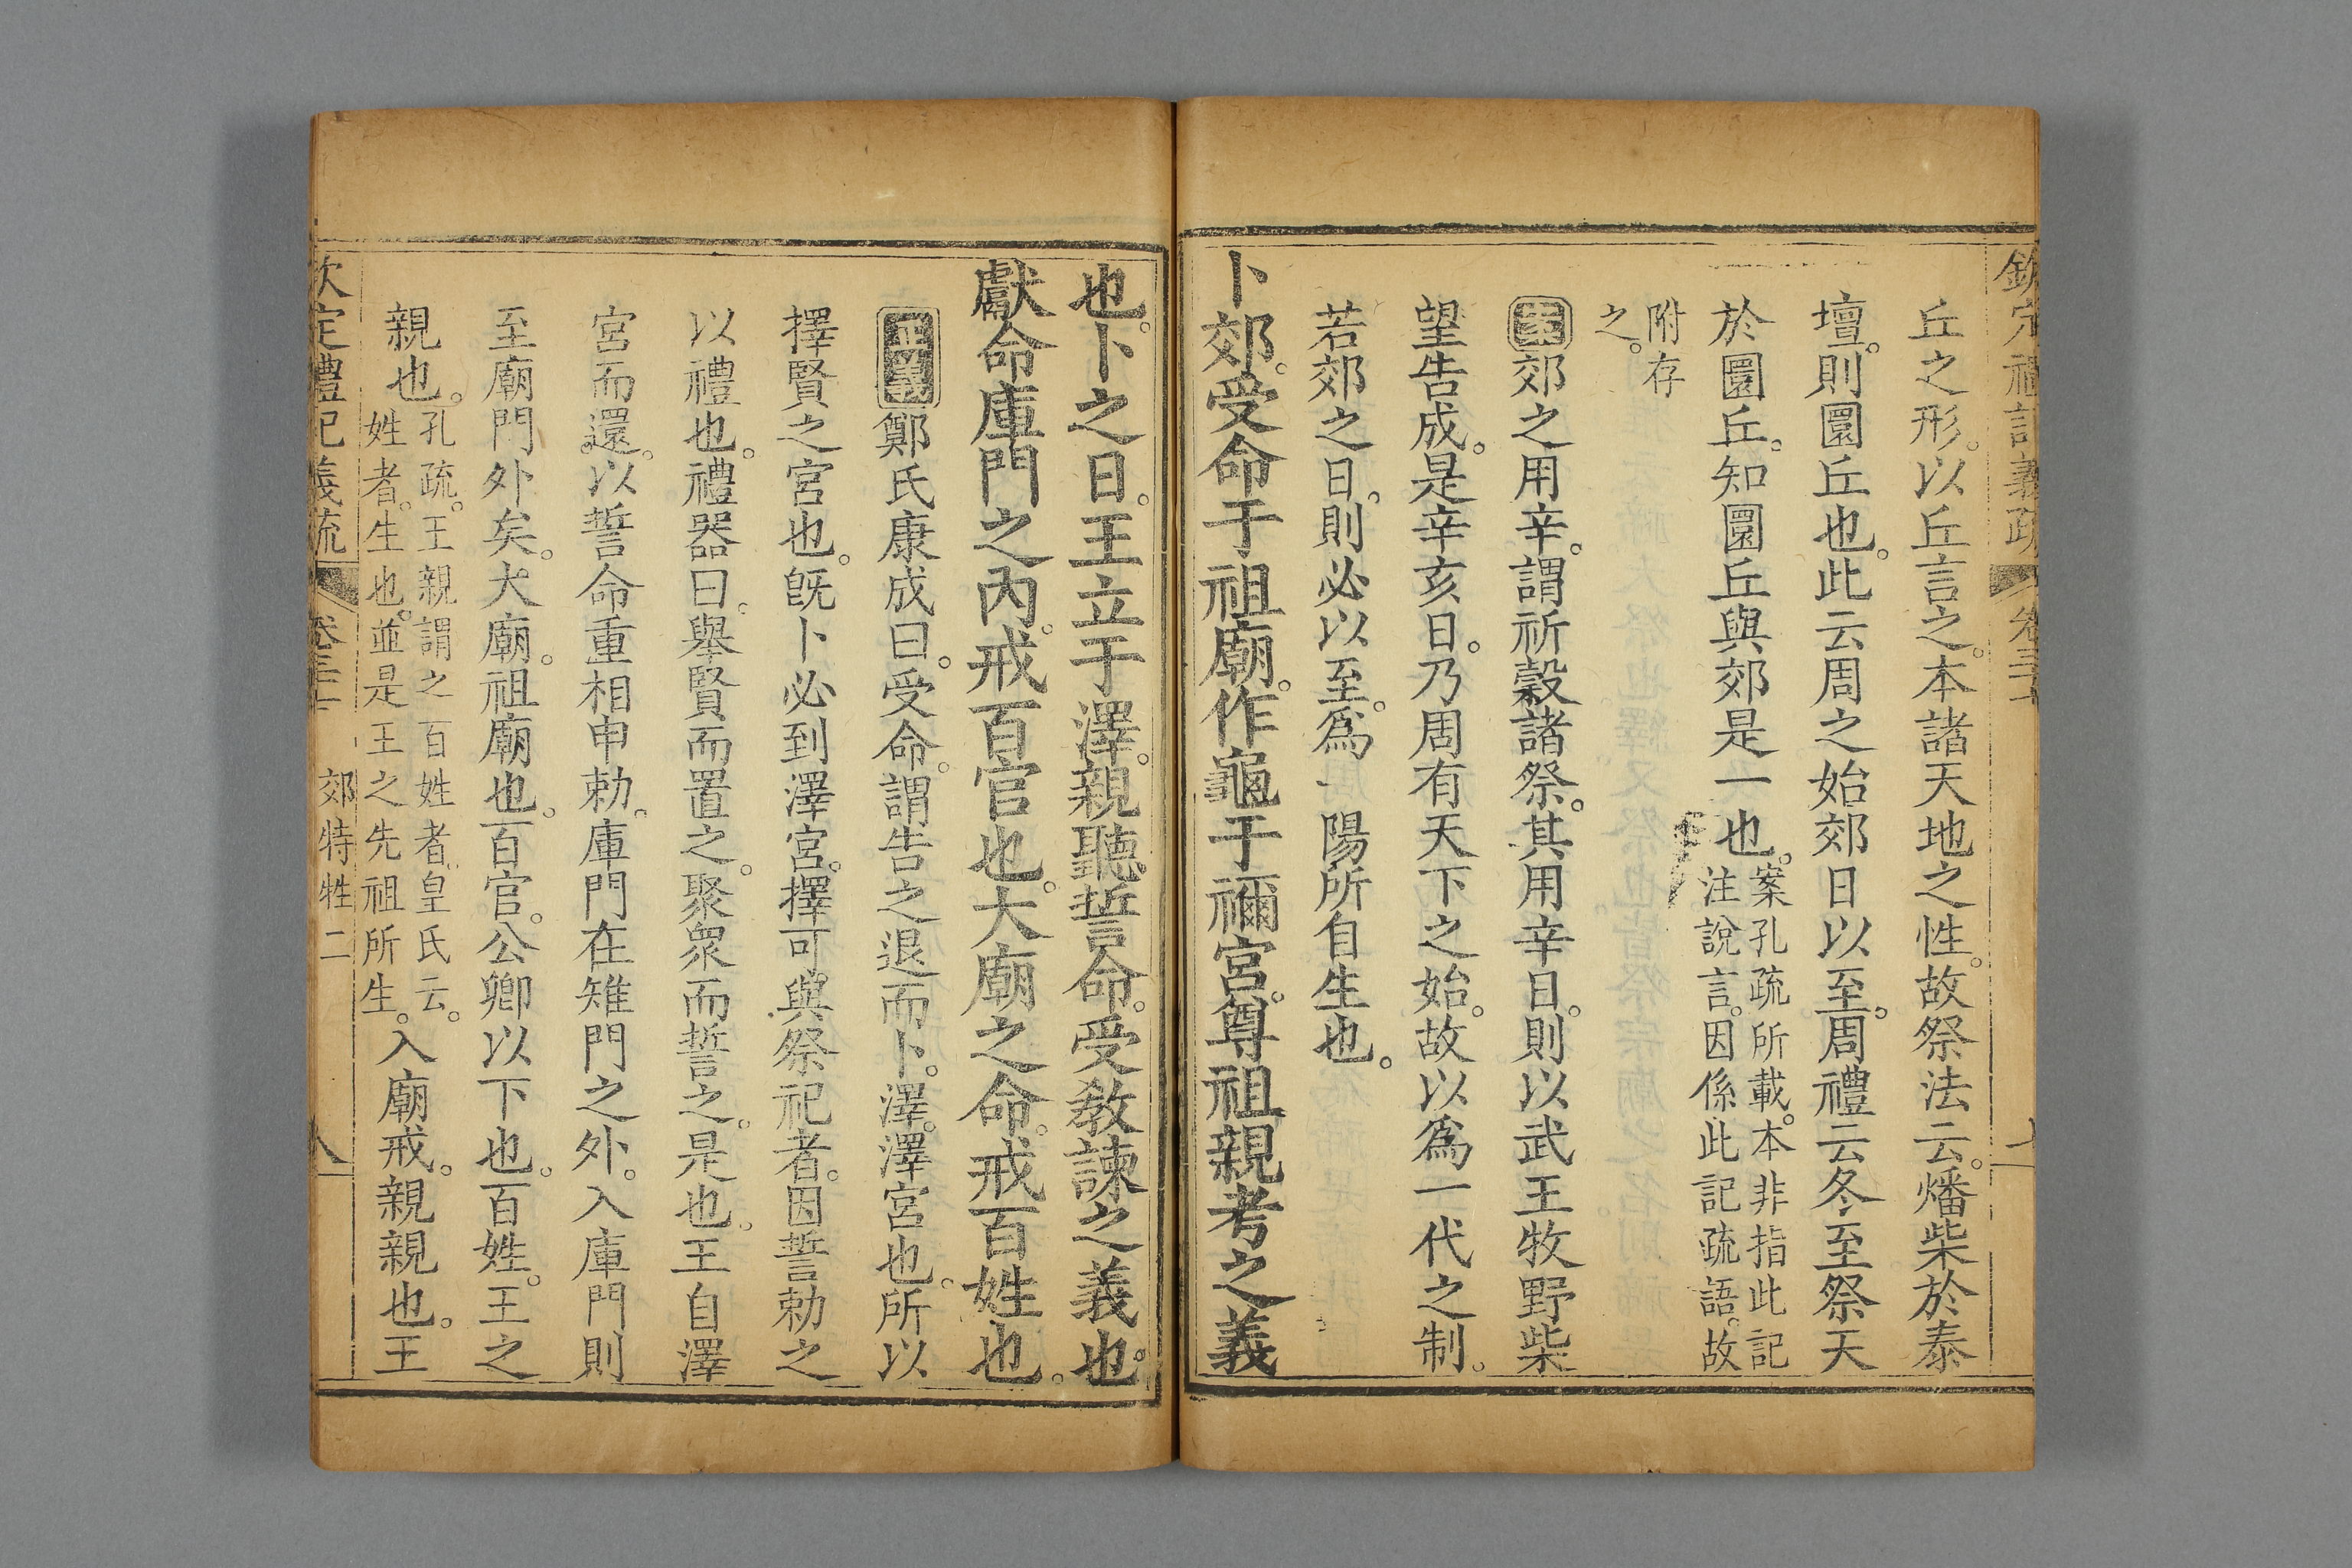 欽定禮記義疏 卷三十
丘之形。以丘言之。本諸天地之性。故祭法云。燔柴於泰
壇。則圜丘也。此云周之始郊日以至。周禮云冬至祭天
於圜丘。知圜丘與郊是一也。案孔疏所載。本非指此記
注說言。因係此記疏語。故
附存
之。
案郊之用辛。謂祈穀諸祭。其用辛日。則以武王牧野柴
望告成。是辛亥日。乃周有天下之始。故以爲一代之制。
若郊之日。則必以至。爲一陽所自生也。
卜郊。受命于祖廟。作龜于禰宮。尊祖親考之義
也。卜之日。王立于澤。親聽誓命。受教諫之義也。
獻命庫門之內。戒百官也。大廟之命。戒百姓也。
正義鄭氏康成曰。受命。謂告之退而卜。澤。澤宮也。所以
擇賢之宮也。旣卜必到澤宮。擇可與祭祀者。因誓勅之
以禮也。禮器曰。舉賢而置之。聚衆而誓之。是也。王自澤
宮而還。以誓命重相申勅。庫門在雉門之外。入庫門則
至廟門外矣。大廟。祖廟也。百官。公卿以下也。百姓。王之
親也。孔疏。王親謂之百姓者。皇氏云。
姓者。生也。並是王之先祖所生。入廟戒。親親也。王
欽定禮記義疏 卷三十 郊特牲二 八